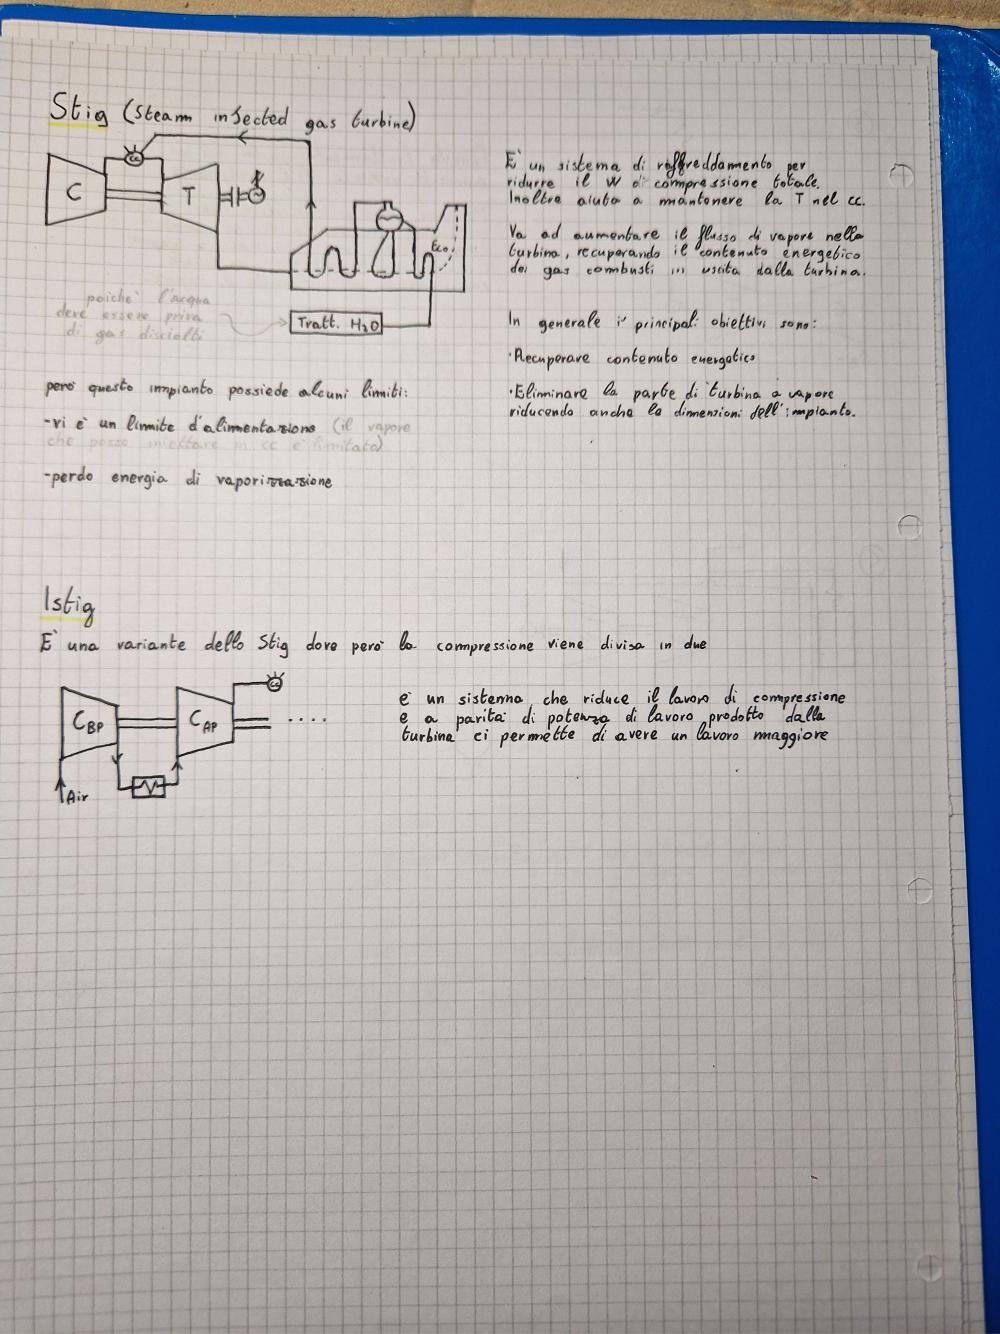 Stig (Steam injected gas turbine)
cc
C
T
Eco
Tratt. H2O
poiche' l'acqua
deve essere priva
di gas disciolti
E' un sistema di raffreddamento per
ridurre il W di compressione totale.
Inoltre aiuta a mantenere la T nel cc.
Va ad aumentare il flusso di vapore nella
turbina, recuperando il contenuto energetico
dei gas combusti in uscita dalla turbina.
In generale i principali obiettivi sono:
·Recuperare contenuto energetico
·Eliminare la parte di turbina a vapore
riducendo anche le dimensioni dell'impianto.
pero' questo impianto possiede alcuni limiti:
-vi è un limite d'alimentazione (il vapore
che posso iniettare in cc è limitato)
-perdo energia di vaporizzazione
Istig
E' una variante dello Stig dove pero' la compressione viene divisa in due
cc
CBP
CAP
....
Air
è un sistema che riduce il lavoro di compressione
e a parita' di potenza di lavoro prodotto dalla
turbina ci permette di avere un lavoro maggiore